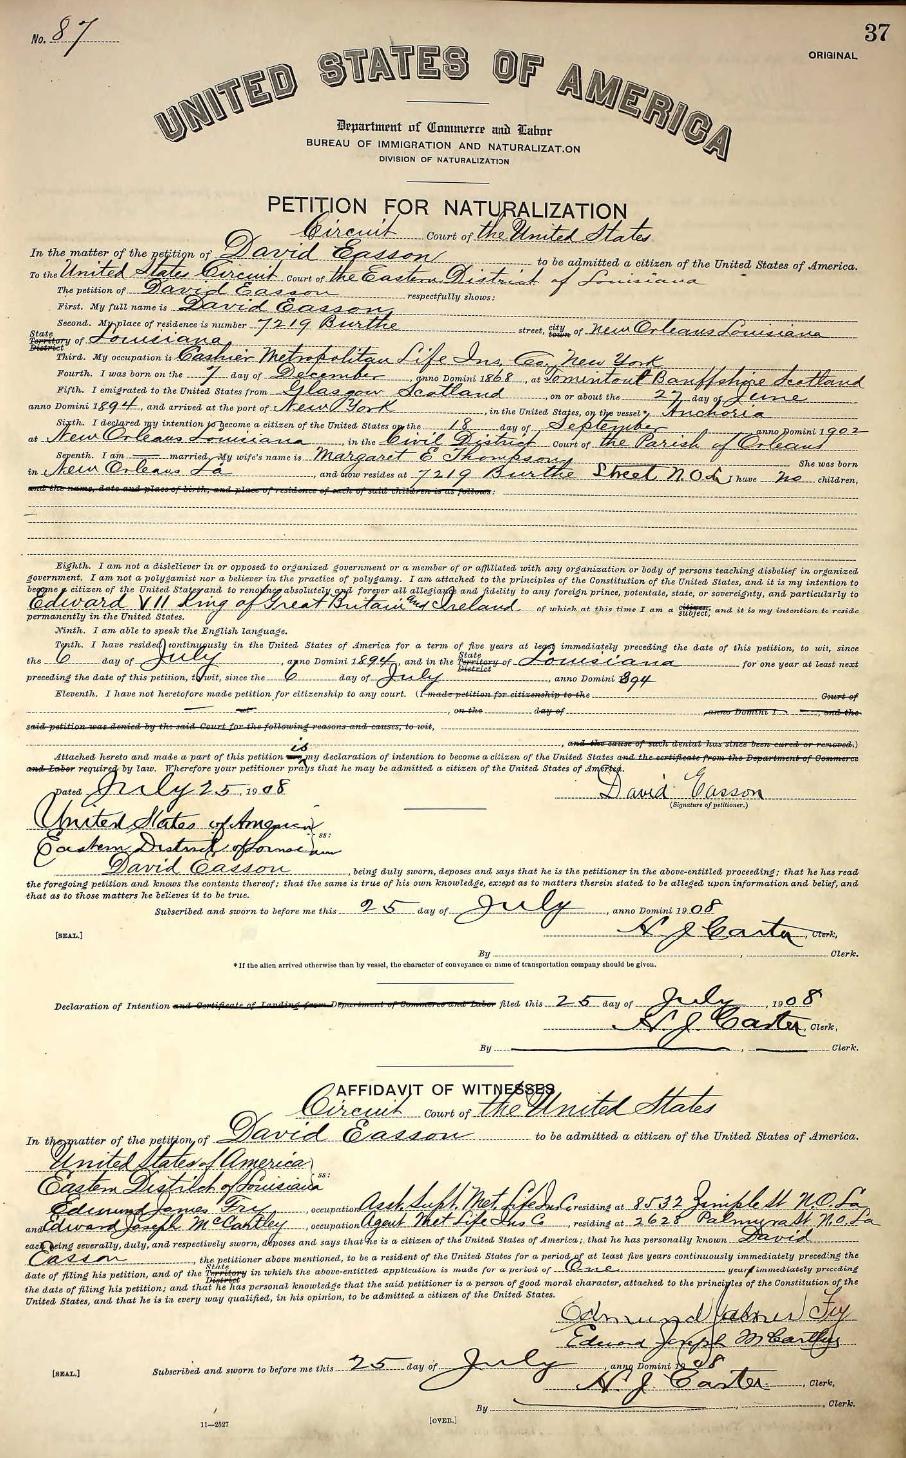 No. 87
37
ORIGINAL
UNITED STATES OF AMERICA
Department of Commerce and Labor
BUREAU OF IMMIGRATION AND NATURALIZATION
DIVISION OF NATURALIZATION
PETITION FOR NATURALIZATION
Circuit Court of the United States
In the matter of the petition of David Easson to be admitted a citizen of the United States of America.
To the United States Circuit Court of the Eastern District of Louisiana
The petition of David Easson respectfully shows:
First. My full name is David Easson
Second. My place of residence is number 7219 Burthe street, city town of New Orleans Louisiana
State Territory District of Louisiana
Third. My occupation is Cashier Metropolitan Life Ins. Co. New York
Fourth. I was born on the 7 day of December anno Domini 1868, at Tomintoul Banffshire Scotland
Fifth. I emigrated to the United States from Glasgow Scotland, on or about the 27 day of June
anno Domini 1894, and arrived at the port of New York, in the United States, on the vessel* Anchoria
Sixth. I declared my intention to become a citizen of the United States on the 18 day of September anno Domini 1902
at New Orleans Louisiana, in the Civil District Court of the Parish of Orleans
Seventh. I am married. My wife's name is Margaret E Thompson She was born
in New Orleans La and now resides at 7219 Burthe Street N.O. La I have no children,
and the name, date and place of birth, and place of residence of each of said children is as follows:
Eighth. I am not a disbeliever in or opposed to organized government or a member of or affiliated with any organization or body of persons teaching disbelief in organized
government. I am not a polygamist nor a believer in the practice of polygamy. I am attached to the principles of the Constitution of the United States, and it is my intention to
become a citizen of the United States and to renounce absolutely and forever all allegiance and fidelity to any foreign prince, potentate, state, or sovereignty, and particularly to
Edward VII King of Great Britain and Ireland of which at this time I am a citizen subject, and it is my intention to reside
permanently in the United States.
Ninth. I am able to speak the English language.
Tenth. I have resided continuously in the United States of America for a term of five years at least immediately preceding the date of this petition, to wit, since
the 6 day of July, anno Domini 1894, and in the State Territory District of Louisiana for one year at least next
preceding the date of this petition, to wit, since the 6 day of July, anno Domini 894
Eleventh. I have not heretofore made petition for citizenship to any court. (I made petition for citizenship to the Court of
at , on the day of anno Domini 1 , and the
said petition was denied by the said Court for the following reasons and causes, to wit,
, and the cause of such denial has since been cured or removed.)
Attached hereto and made a part of this petition is my declaration of intention to become a citizen of the United States and the certificate from the Department of Commerce
and Labor required by law. Wherefore your petitioner prays that he may be admitted a citizen of the United States of America.
Dated July 25, 1908
David Easson
(Signature of petitioner.)
United States of America
Eastern District of Louisiana ss:
David Easson, being duly sworn, deposes and says that he is the petitioner in the above-entitled proceeding; that he has read
the foregoing petition and knows the contents thereof; that the same is true of his own knowledge, except as to matters therein stated to be alleged upon information and belief, and
that as to those matters he believes it to be true.
Subscribed and sworn to before me this 25 day of July, anno Domini 1908
H J Carter, Clerk,
[SEAL.]
By , Clerk.
* If the alien arrived otherwise than by vessel, the character of conveyance or name of transportation company should be given.
Declaration of Intention and Certificate of Landing from Department of Commerce and Labor filed this 25 day of July, 1908
H. J. Carter, Clerk,
By , Clerk.
AFFIDAVIT OF WITNESSES
Circuit Court of the United States
In the matter of the petition of David Easson to be admitted a citizen of the United States of America.
United States of America
Eastern District of Louisiana ss:
Edmund James Fry, occupation Asst. Supt. Met. Life Ins Co residing at 8532 Zimple St N.O. La
and Edward Joseph McCarthy, occupation Agent Met Life Ins Co, residing at 2628 Palmyra St N.O. La
each being severally, duly, and respectively sworn, deposes and says that he is a citizen of the United States of America; that he has personally known David
Easson, the petitioner above mentioned, to be a resident of the United States for a period of at least five years continuously immediately preceding the
date of filing his petition, and of the State Territory District in which the above-entitled application is made for a period of One years immediately preceding
the date of filing his petition; and that he has personal knowledge that the said petitioner is a person of good moral character, attached to the principles of the Constitution of the
United States, and that he is in every way qualified, in his opinion, to be admitted a citizen of the United States.
Edmund James Fry
Edward Joseph McCarthy
Subscribed and sworn to before me this 25 day of July, anno Domini 1908
[SEAL.]
H. J. Carter, Clerk,
By , Clerk.
11—2527
[OVER.]